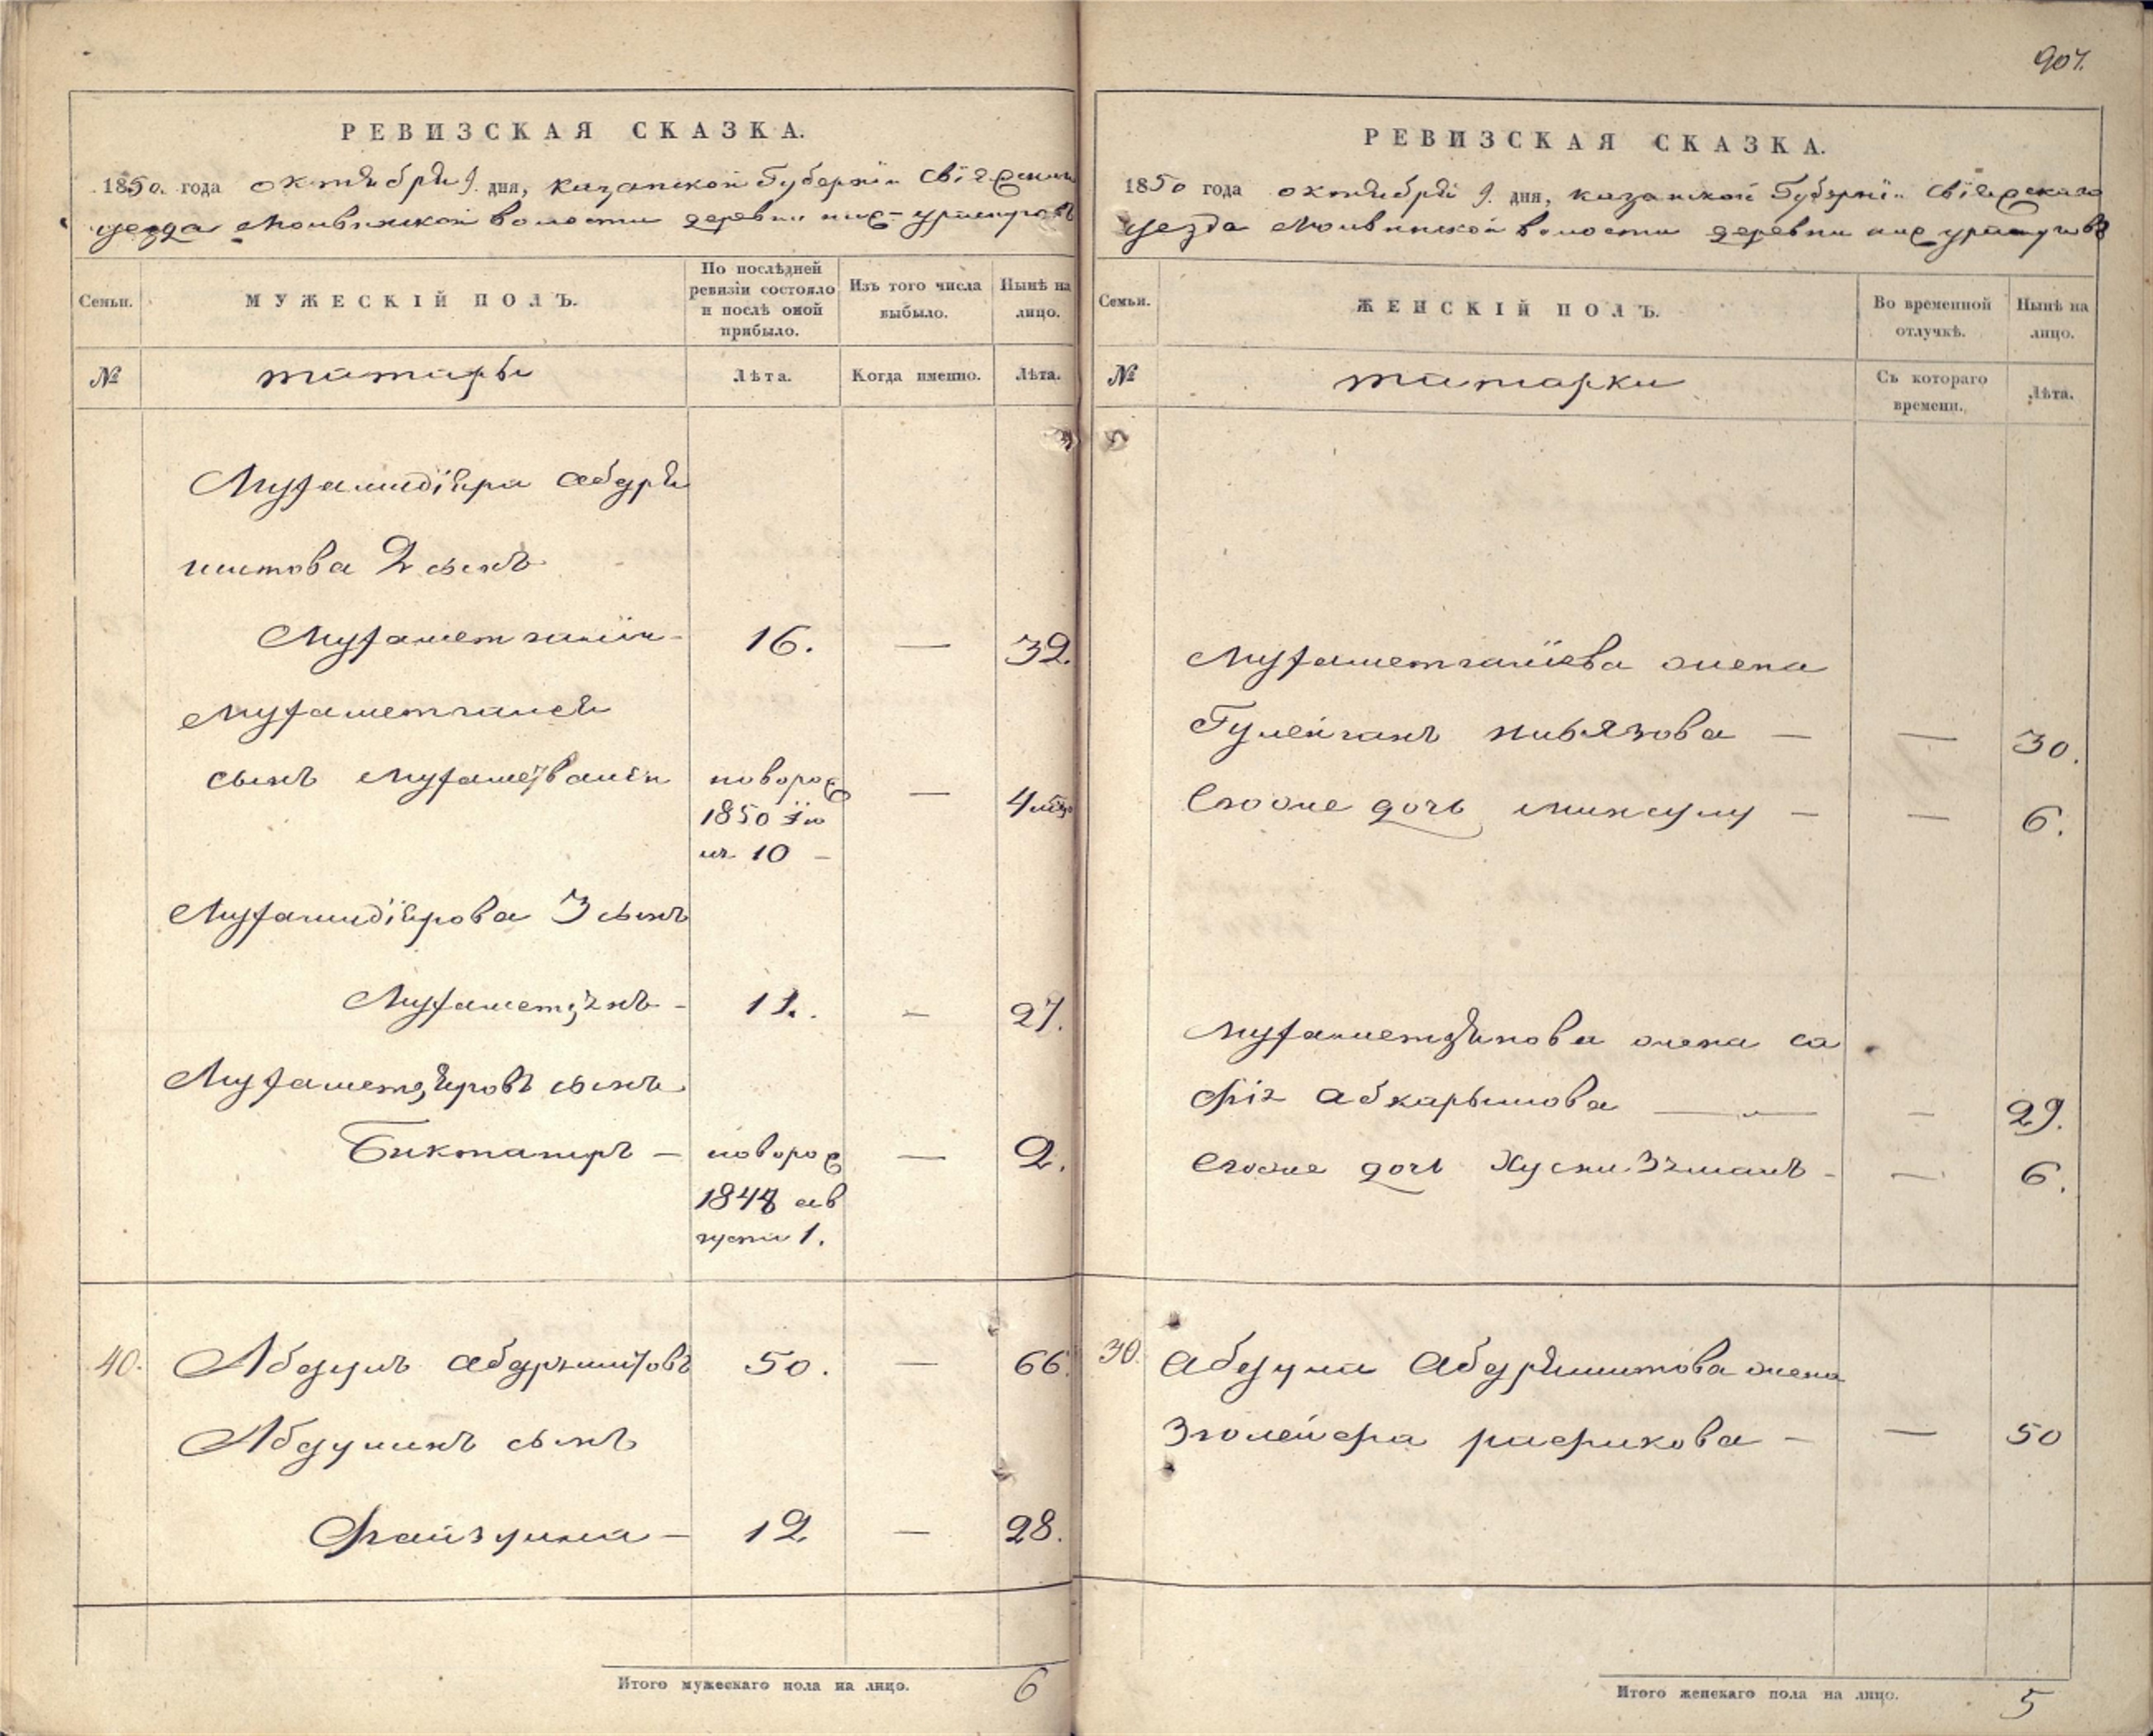 907.
РЕВИЗСКАЯ СКАЗКА.
1850. года октября 9. дня, казанской Губернiи Свiяжскаго
уезда Молвинской волости деревни
Семьи.
МУЖЕСКIЙ ПОЛЪ.
По послѣдней ревизiи состояло и послѣ оной прибыло.
Изъ того числа выбыло.
Нынѣ на лицо.
№
татары
Лѣта.
Когда именно.
Лѣта.
Мухамидiяра абдря
шитова 2 сынъ
Мухаметгалiй - 16. — 32.
мухаметгалея
сынъ новорож — 4
1850 iю
ня 10 -
Мухамидiярова 3 сынъ
- 11. - 27.
сынъ
Биктагиръ - новорож — 2.
1848 ав
густа 1.
40. Абдулъ абдряшитовъ 50. — 66.
Абдулинъ сынъ
Файзулла - 12 — 28.
Итого мужескаго пола на лицо. 6
РЕВИЗСКАЯ СКАЗКА.
1850 года октября 9. дня, казанской Губернiи Свiяжскаго
уезда Молвинской волости деревни
Семьи.
ЖЕНСКIЙ ПОЛЪ.
Во временной отлучкѣ.
Нынѣ на лицо.
№
татарки
Съ котораго времени.
Лѣта.
Мухаметгалiева жена
нивязова — — 30.
Егоже дочь — — 6.
жена са
фiя абкарымова — - 29.
Егоже дочь - — 6.
30. Абдула Абдряшитова жена
Зюлейфа рафикова - — 50
Итого женскаго пола на лицо. 5